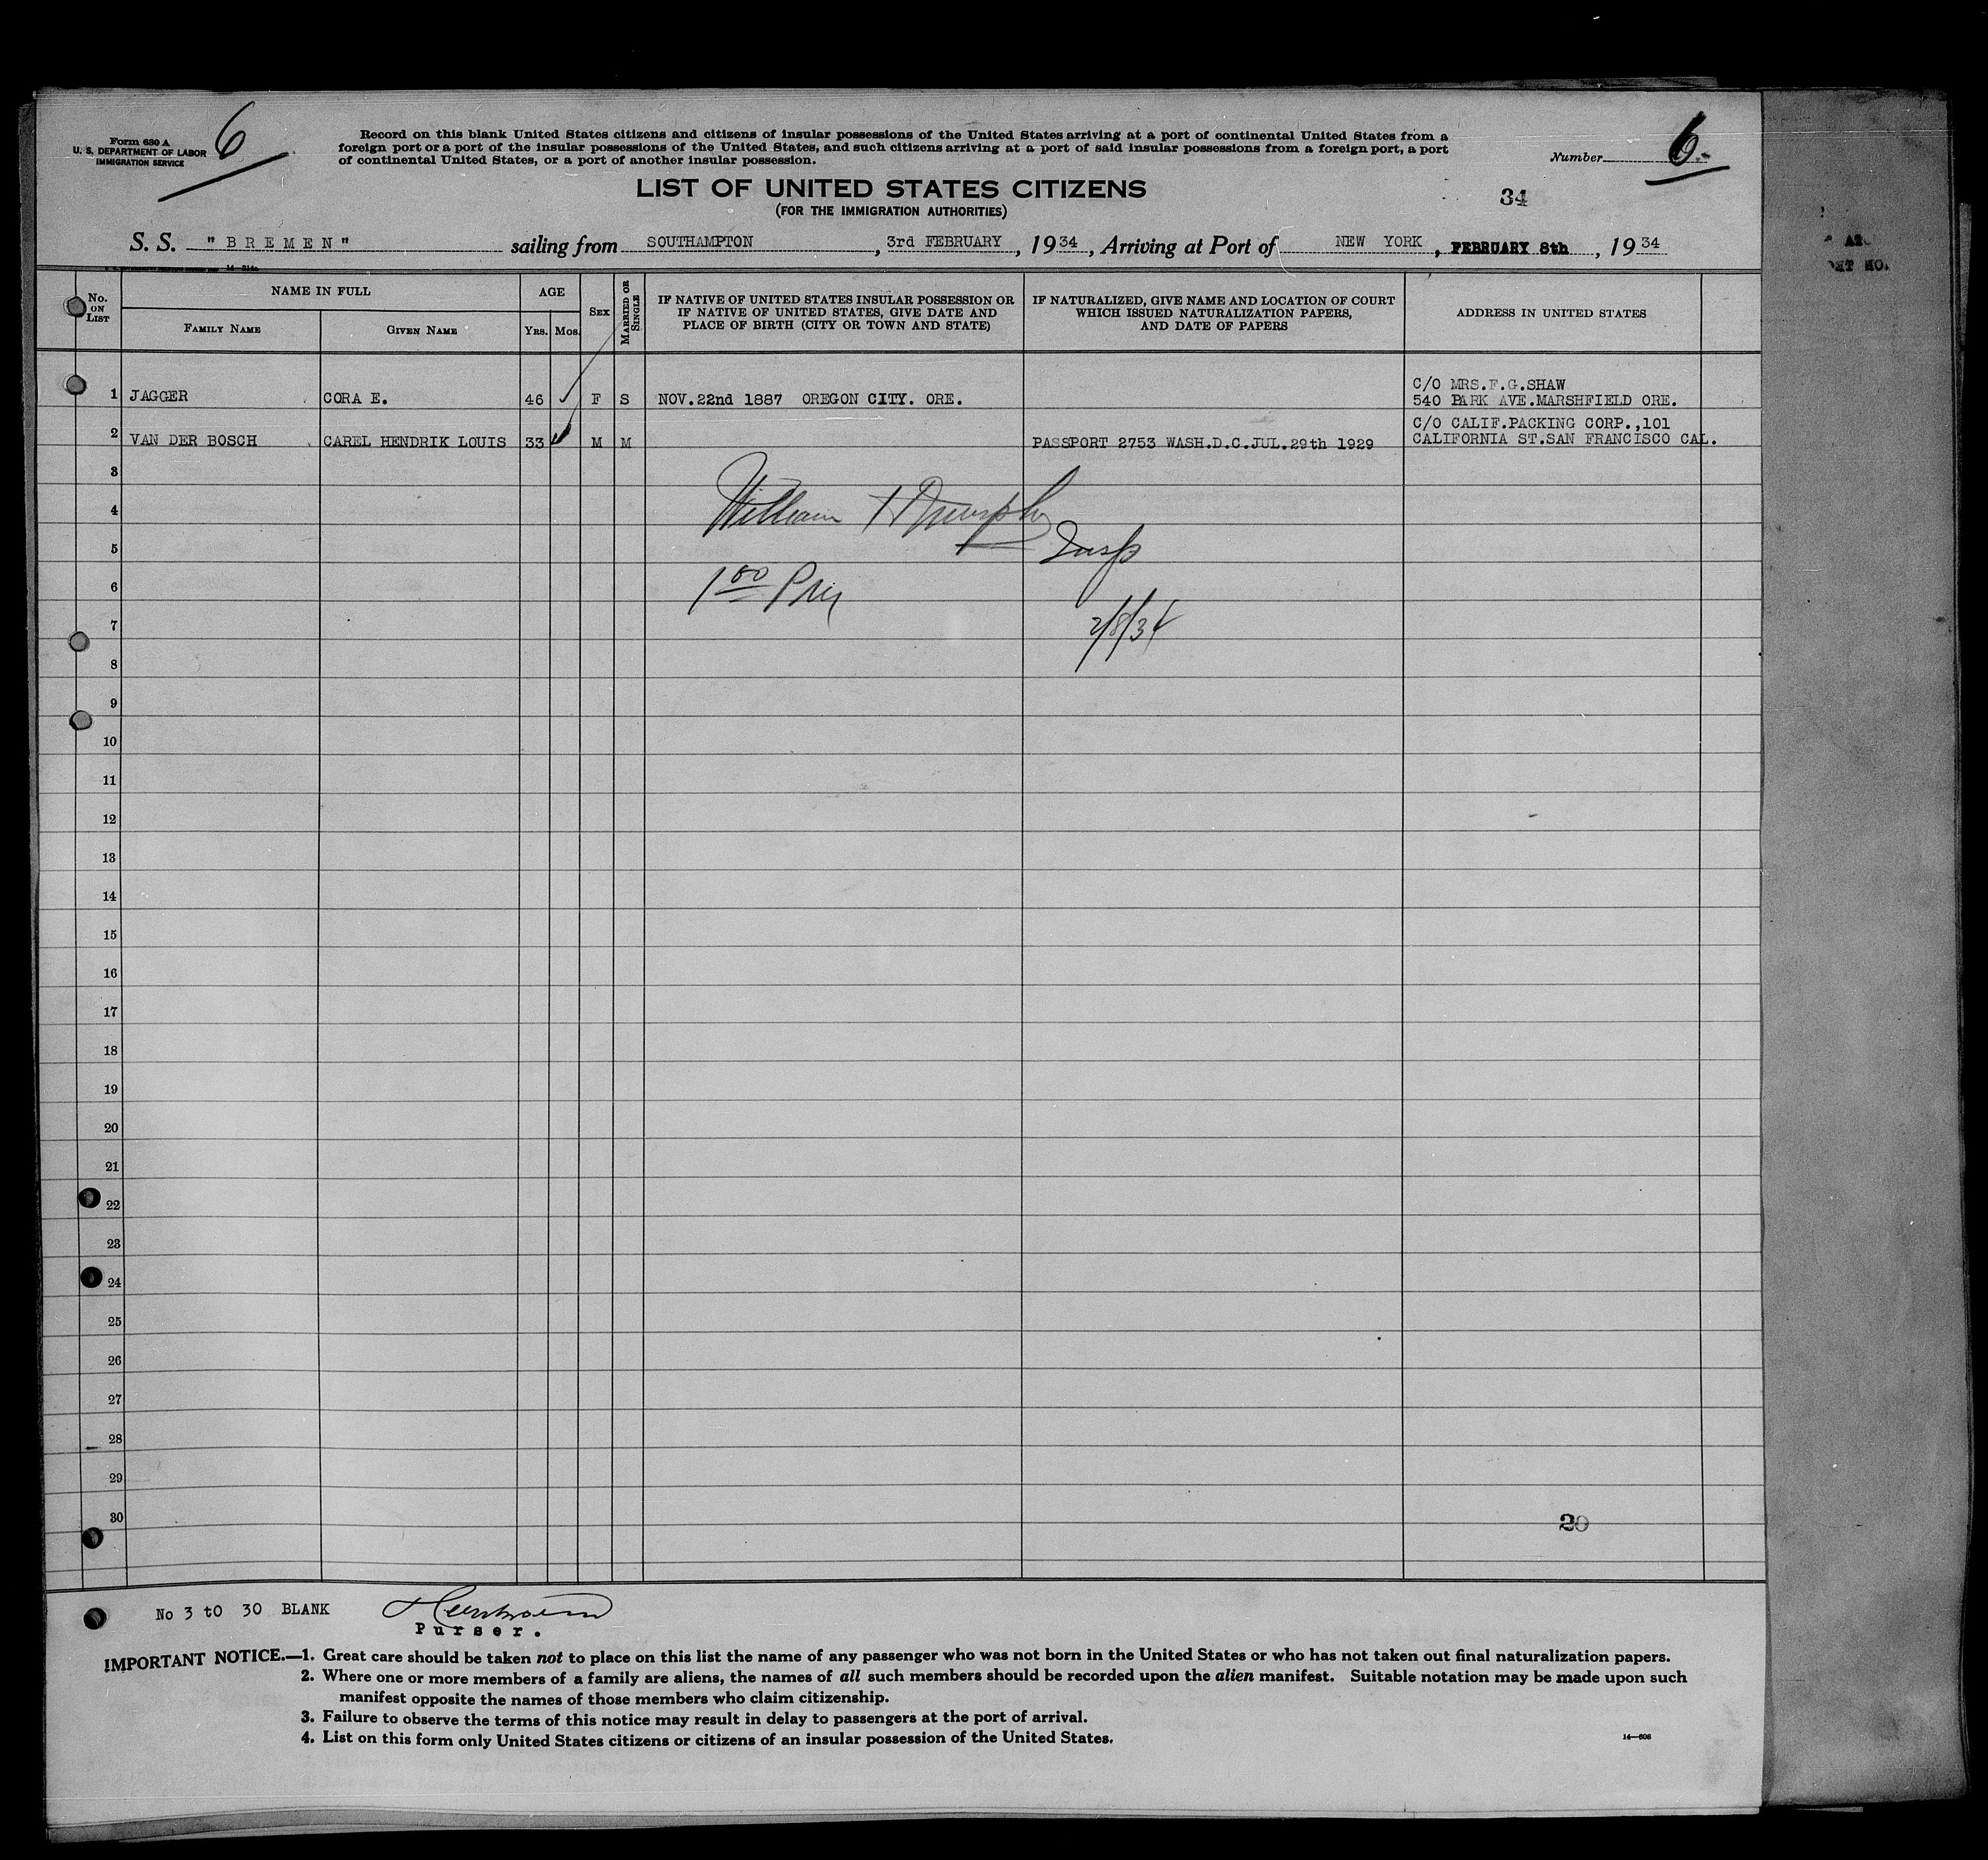 Form 630 A
U. S. DEPARTMENT OF LABOR
IMMIGRATION SERVICE
6
Record on this blank United States citizens and citizens of insular possessions of the United States arriving at a port of continental United States from a
foreign port or a port of the insular possessions of the United States, and such citizens arriving at a port of said insular possessions from a foreign port, a port
of continental United States, or a port of another insular possession.
Number 6.
LIST OF UNITED STATES CITIZENS
(FOR THE IMMIGRATION AUTHORITIES)
34
S. S. "BREMEN" sailing from SOUTHAMPTON, 3rd FEBRUARY, 1934, Arriving at Port of NEW YORK, FEBRUARY 8th, 1934
No. ON LIST
NAME IN FULL
FAMILY NAME
GIVEN NAME
AGE
YRS. MOS.
SEX
MARRIED OR SINGLE
IF NATIVE OF UNITED STATES INSULAR POSSESSION OR
IF NATIVE OF UNITED STATES, GIVE DATE AND
PLACE OF BIRTH (CITY OR TOWN AND STATE)
IF NATURALIZED, GIVE NAME AND LOCATION OF COURT
WHICH ISSUED NATURALIZATION PAPERS,
AND DATE OF PAPERS
ADDRESS IN UNITED STATES
C/O MRS.F.G.SHAW
1 JAGGER CORA E. 46 ✓ F S NOV.22nd 1887 OREGON CITY. ORE. 540 PARK AVE.MARSHFIELD ORE.
C/O CALIF.PACKING CORP.,101
2 VAN DER BOSCH CAREL HENDRIK LOUIS 33 ✓ M M PASSPORT 2753 WASH.D.C.JUL.29th 1929 CALIFORNIA ST.SAN FRANCISCO CAL.
3
4 William H Murphy
5 Insp
6 1
7 2/8/34
8
9
10
11
12
13
14
15
16
17
18
19
20
21
22
23
24
25
26
27
28
29
30
20
No 3 to 30 BLANK
Purser.
IMPORTANT NOTICE.—1. Great care should be taken not to place on this list the name of any passenger who was not born in the United States or who has not taken out final naturalization papers.
2. Where one or more members of a family are aliens, the names of all such members should be recorded upon the alien manifest. Suitable notation may be made upon such
manifest opposite the names of those members who claim citizenship.
3. Failure to observe the terms of this notice may result in delay to passengers at the port of arrival.
4. List on this form only United States citizens or citizens of an insular possession of the United States.
14—608